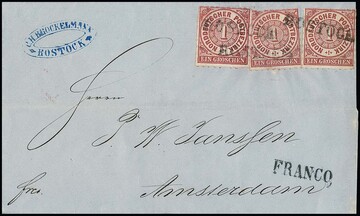 C.H. BROCKELMANN
ROSTOCK
NORDDEUTSCHER POSTBEZIRK
1
EIN GROSCHEN
NORDDEUTSCHER POSTBEZIRK
1
EIN GROSCHEN
NORDDEUTSCHER POSTBEZIRK
1
EIN GROSCHEN
ROSTOCK
Herrn
P. W. Janssen
FRANCO
frco.
Amsterdam